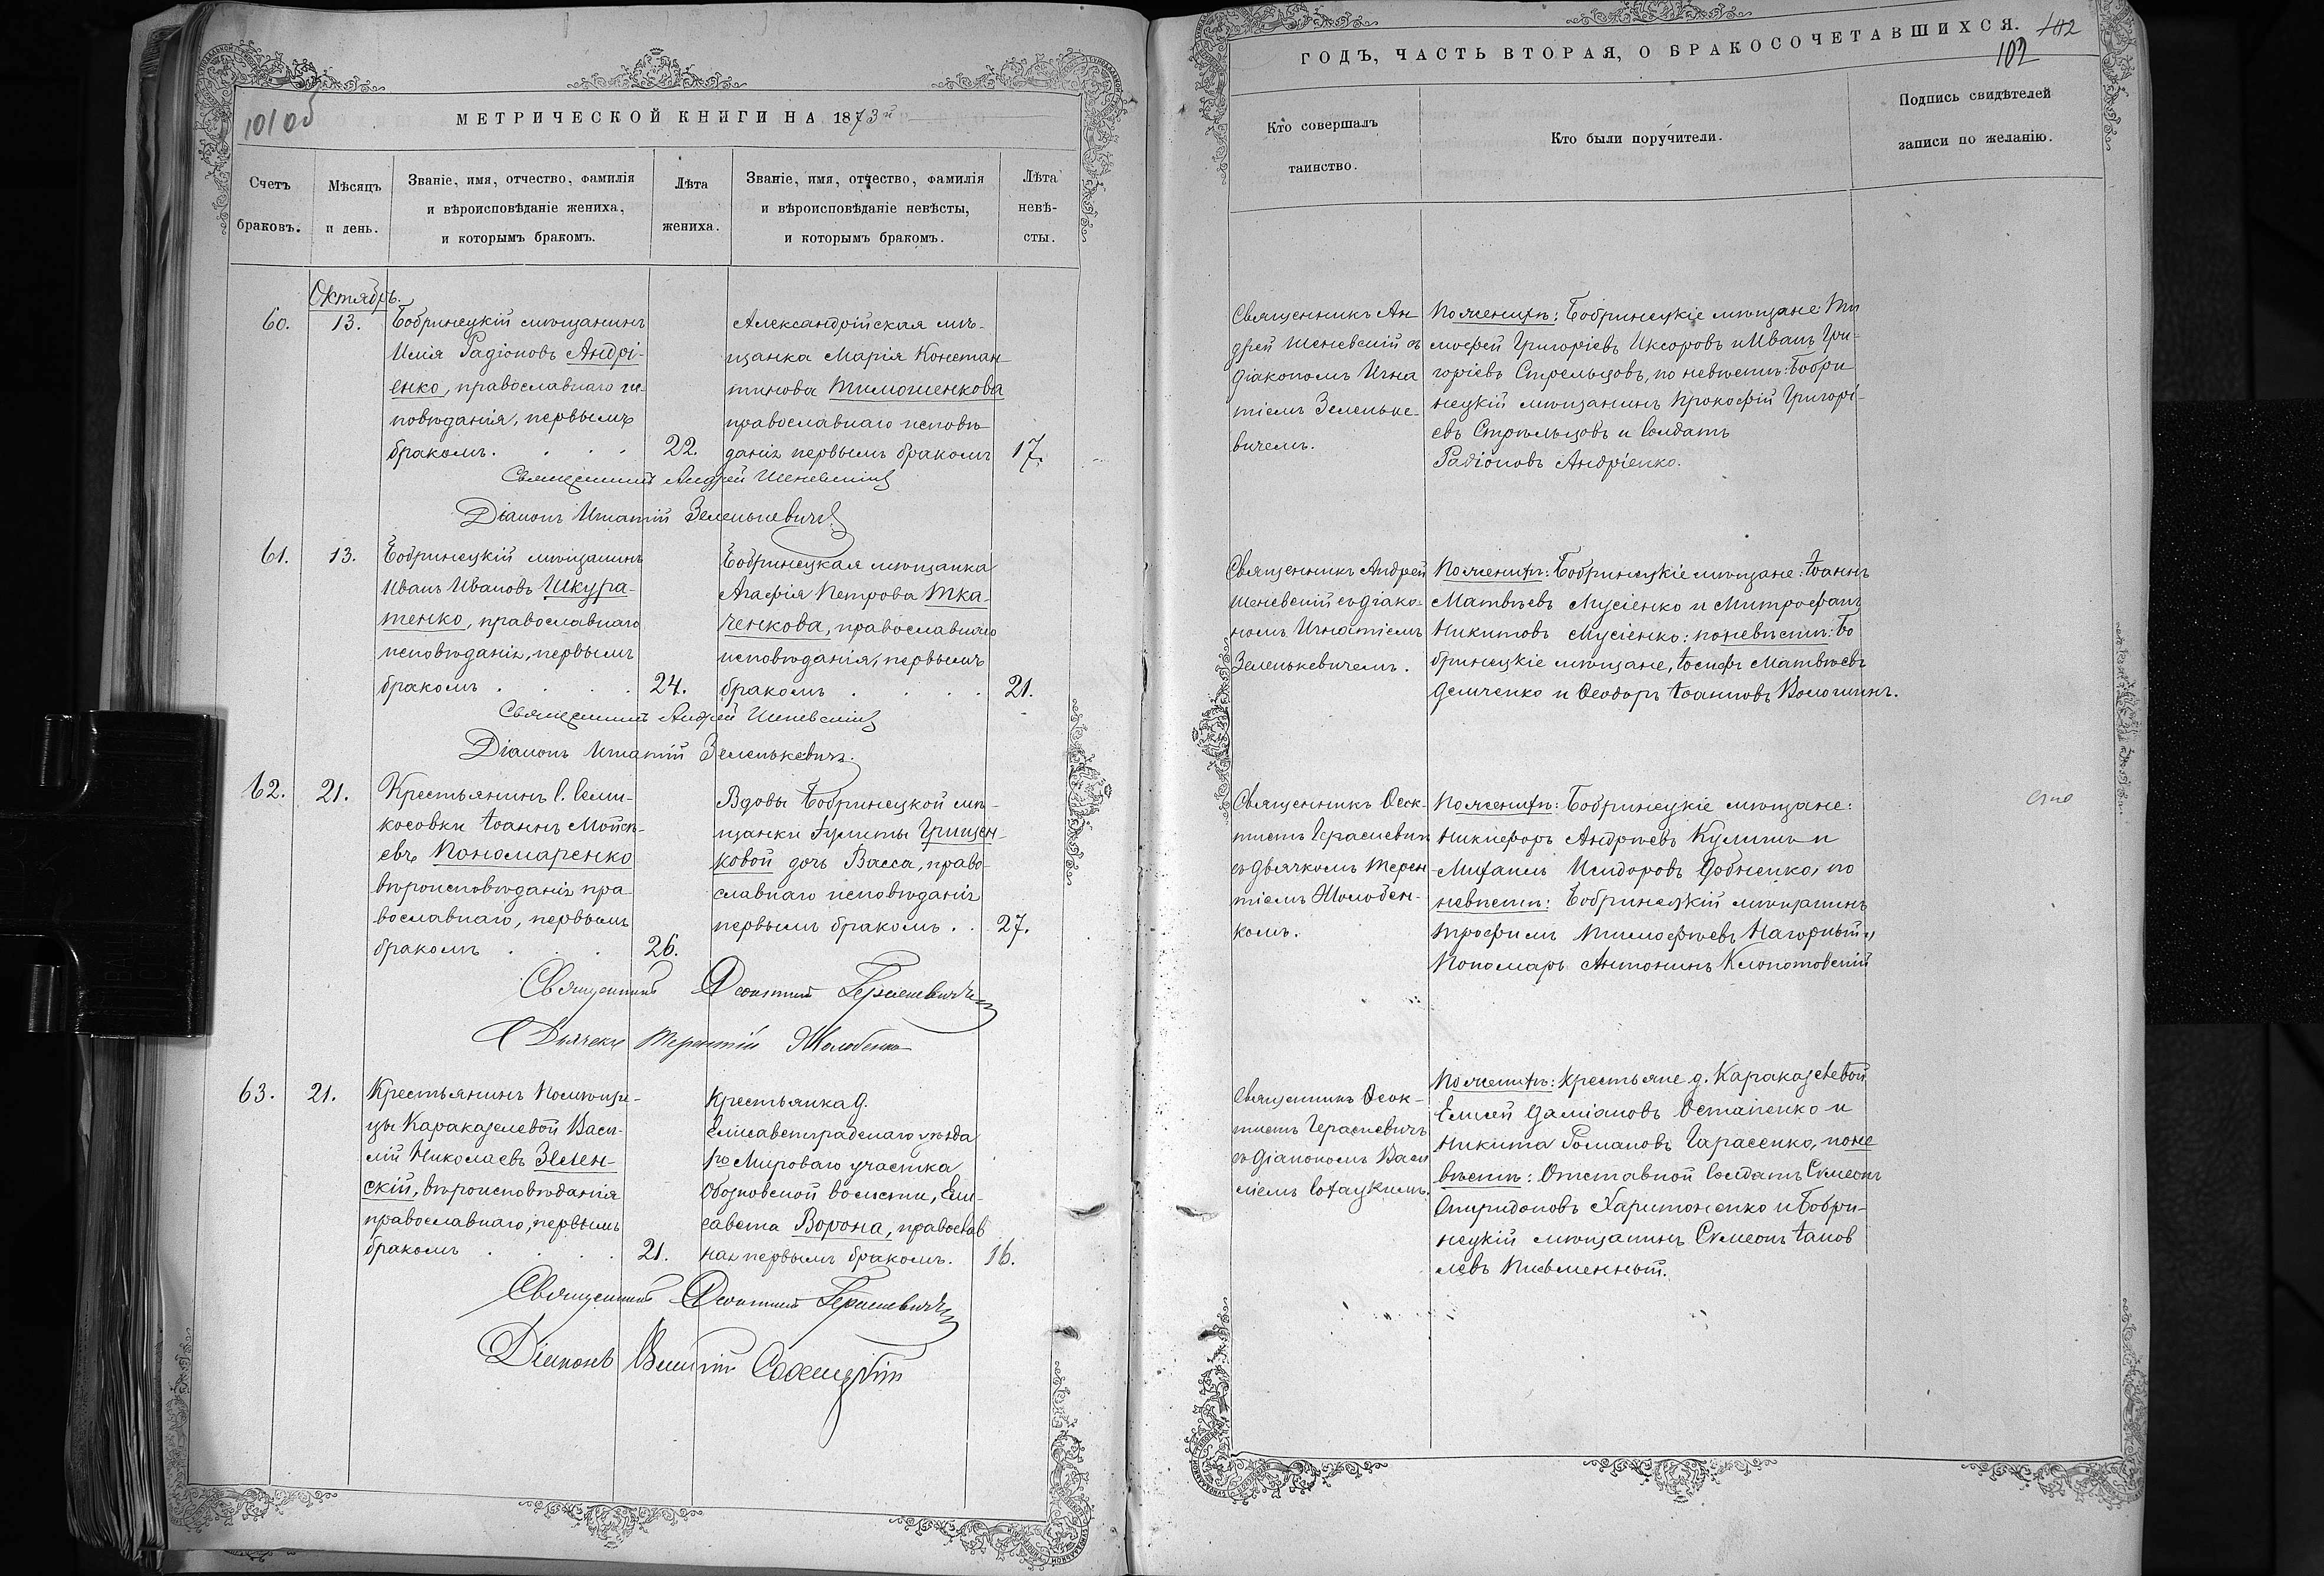 МЕТРИЧЕСКОЙ КНИГИ НА 1873й
Счетъ браковъ.
Мѣсяцъ и день.
Званіе, имя, отчество, фамилія
и вѣроисповѣданіе жениха,
и которымъ бракомъ.
Лѣта жениха.
Званіе, имя, отчество, фамилія
и вѣроисповѣданіе невѣсты,
и которымъ бракомъ.
Лѣта невѣ-
сты.
Октябрь.
60.
13.
Бобринецкій мѣщанинъ
Илія Радіоновъ Андрі-
енко, православнаго ис
повѣданія, первымъ
бракомъ.
22.
Александрійская мѣ-
щанка Марія Констан-
тинова Тимошенкова
православнаго исповѣ
данія первымъ бракомъ
17.
Священникъ Андрей Шеневскій
Діаконъ Игнатій Зеленькевичъ
61.
13.
Бобринецкій мѣщанинъ
Иванъ Ивановъ Шкура-
тенко, православнаго
исповѣданія, первымъ
бракомъ
24.
Бобринецкая мѣщанка
Агафія Петрова Тка-
ченкова, православнаго
исповѣданія, первымъ
бракомъ
21.
Священникъ Андрей Шеневскій
Діаконъ Игнатій Зеленькевичъ.
62.
21.
Крестьянинъ с. Семи-
косовки Іоаннъ Мойсе-
евъ Пономаренко
вѣроисповѣданія пра-
вославнаго, первымъ
бракомъ
26.
Вдовы Бобринецкой мѣ-
щанки Іулиты Грицен-
ковой дочь Васса, право-
славнаго исповѣданія
первымъ бракомъ
27.
Священникъ Ѳеоктистъ Герасиевичъ
Дьячекъ Терентій Жолобенко
63.
21.
Крестьянинъ Помѣщи-
цы Караказелевой Васи-
лій Николаевъ Зелен-
скій, вѣроисповѣданія
православнаго, первымъ
бракомъ
21.
Крестьянка д.
Елисаветградскаго уѣзда
го Мироваго участка
Обозновской волости, Ели-
савета Ворона, православ
ная первымъ бракомъ.
16.
Священникъ Ѳеоктистъ Герасиевичъ
Діаконъ Василій
ГОДЪ, ЧАСТЬ ВТОРАЯ, О БРАКОСОЧЕТАВШИХСЯ.
102
102
Кто совершалъ
таинство.
Кто были поручители.
Подпись свидѣтелей
записи по желанію.
Священникъ Ан
дрей Шеневскій съ
діакономъ Игна
тіемъ Зеленьке-
вичемъ.
По женихѣ: Бобринецкіе мѣщане: Ти
мофей Григоріевъ и Иванъ Гри-
горіевъ Стрельцовъ, по невѣстѣ: Бобри
нецкій мѣщанинъ Прокофій Григорі-
евъ Стрѣльцовъ и Солдатъ
Радіоновъ Андріенко.
Священникъ Андрей
Шеневскій съ діако-
номъ Игнатіемъ
Зеленькевичемъ.
По женихѣ: Бобринецкіе мѣщане: Іоаннъ
Матвѣевъ Мусіенко и Митрофанъ
Никитовъ Мусіенко: по невѣстѣ: Бо
бринецкіе мѣщане, Іосифъ Матвѣевъ
Демченко и Ѳеодоръ Іоанновъ Волошинъ.
Священникъ Ѳеок-
тистъ Герасиевичъ
съ Дьячкомъ Терен-
тіемъ Жолобен-
комъ.
По женихѣ: Бобринецкіе мѣщане:
Никифоръ Андреевъ Кулишъ и
Михаилъ Исидоровъ по
невѣстѣ: Бобринецкій мѣщанинъ
Трофимъ Тимофѣевъ Нагорный и
Пономарь Антонинъ Клопотовскій
Священникъ Ѳеок-
тистъ Герасиевичъ
съ Діакономъ Васи
ліемъ
По женихѣ: крестьяне д. Караказелевой
Елисей Даміановъ Остапенко и
Никита Романовъ Гарасенко, по не
вѣстѣ: Отставной Солдатъ Сѵмеонъ
Спиридоновъ Харитоненко и Бобри-
нецкій мѣщанинъ Сѵмеонъ Іаков
левъ Письменный.